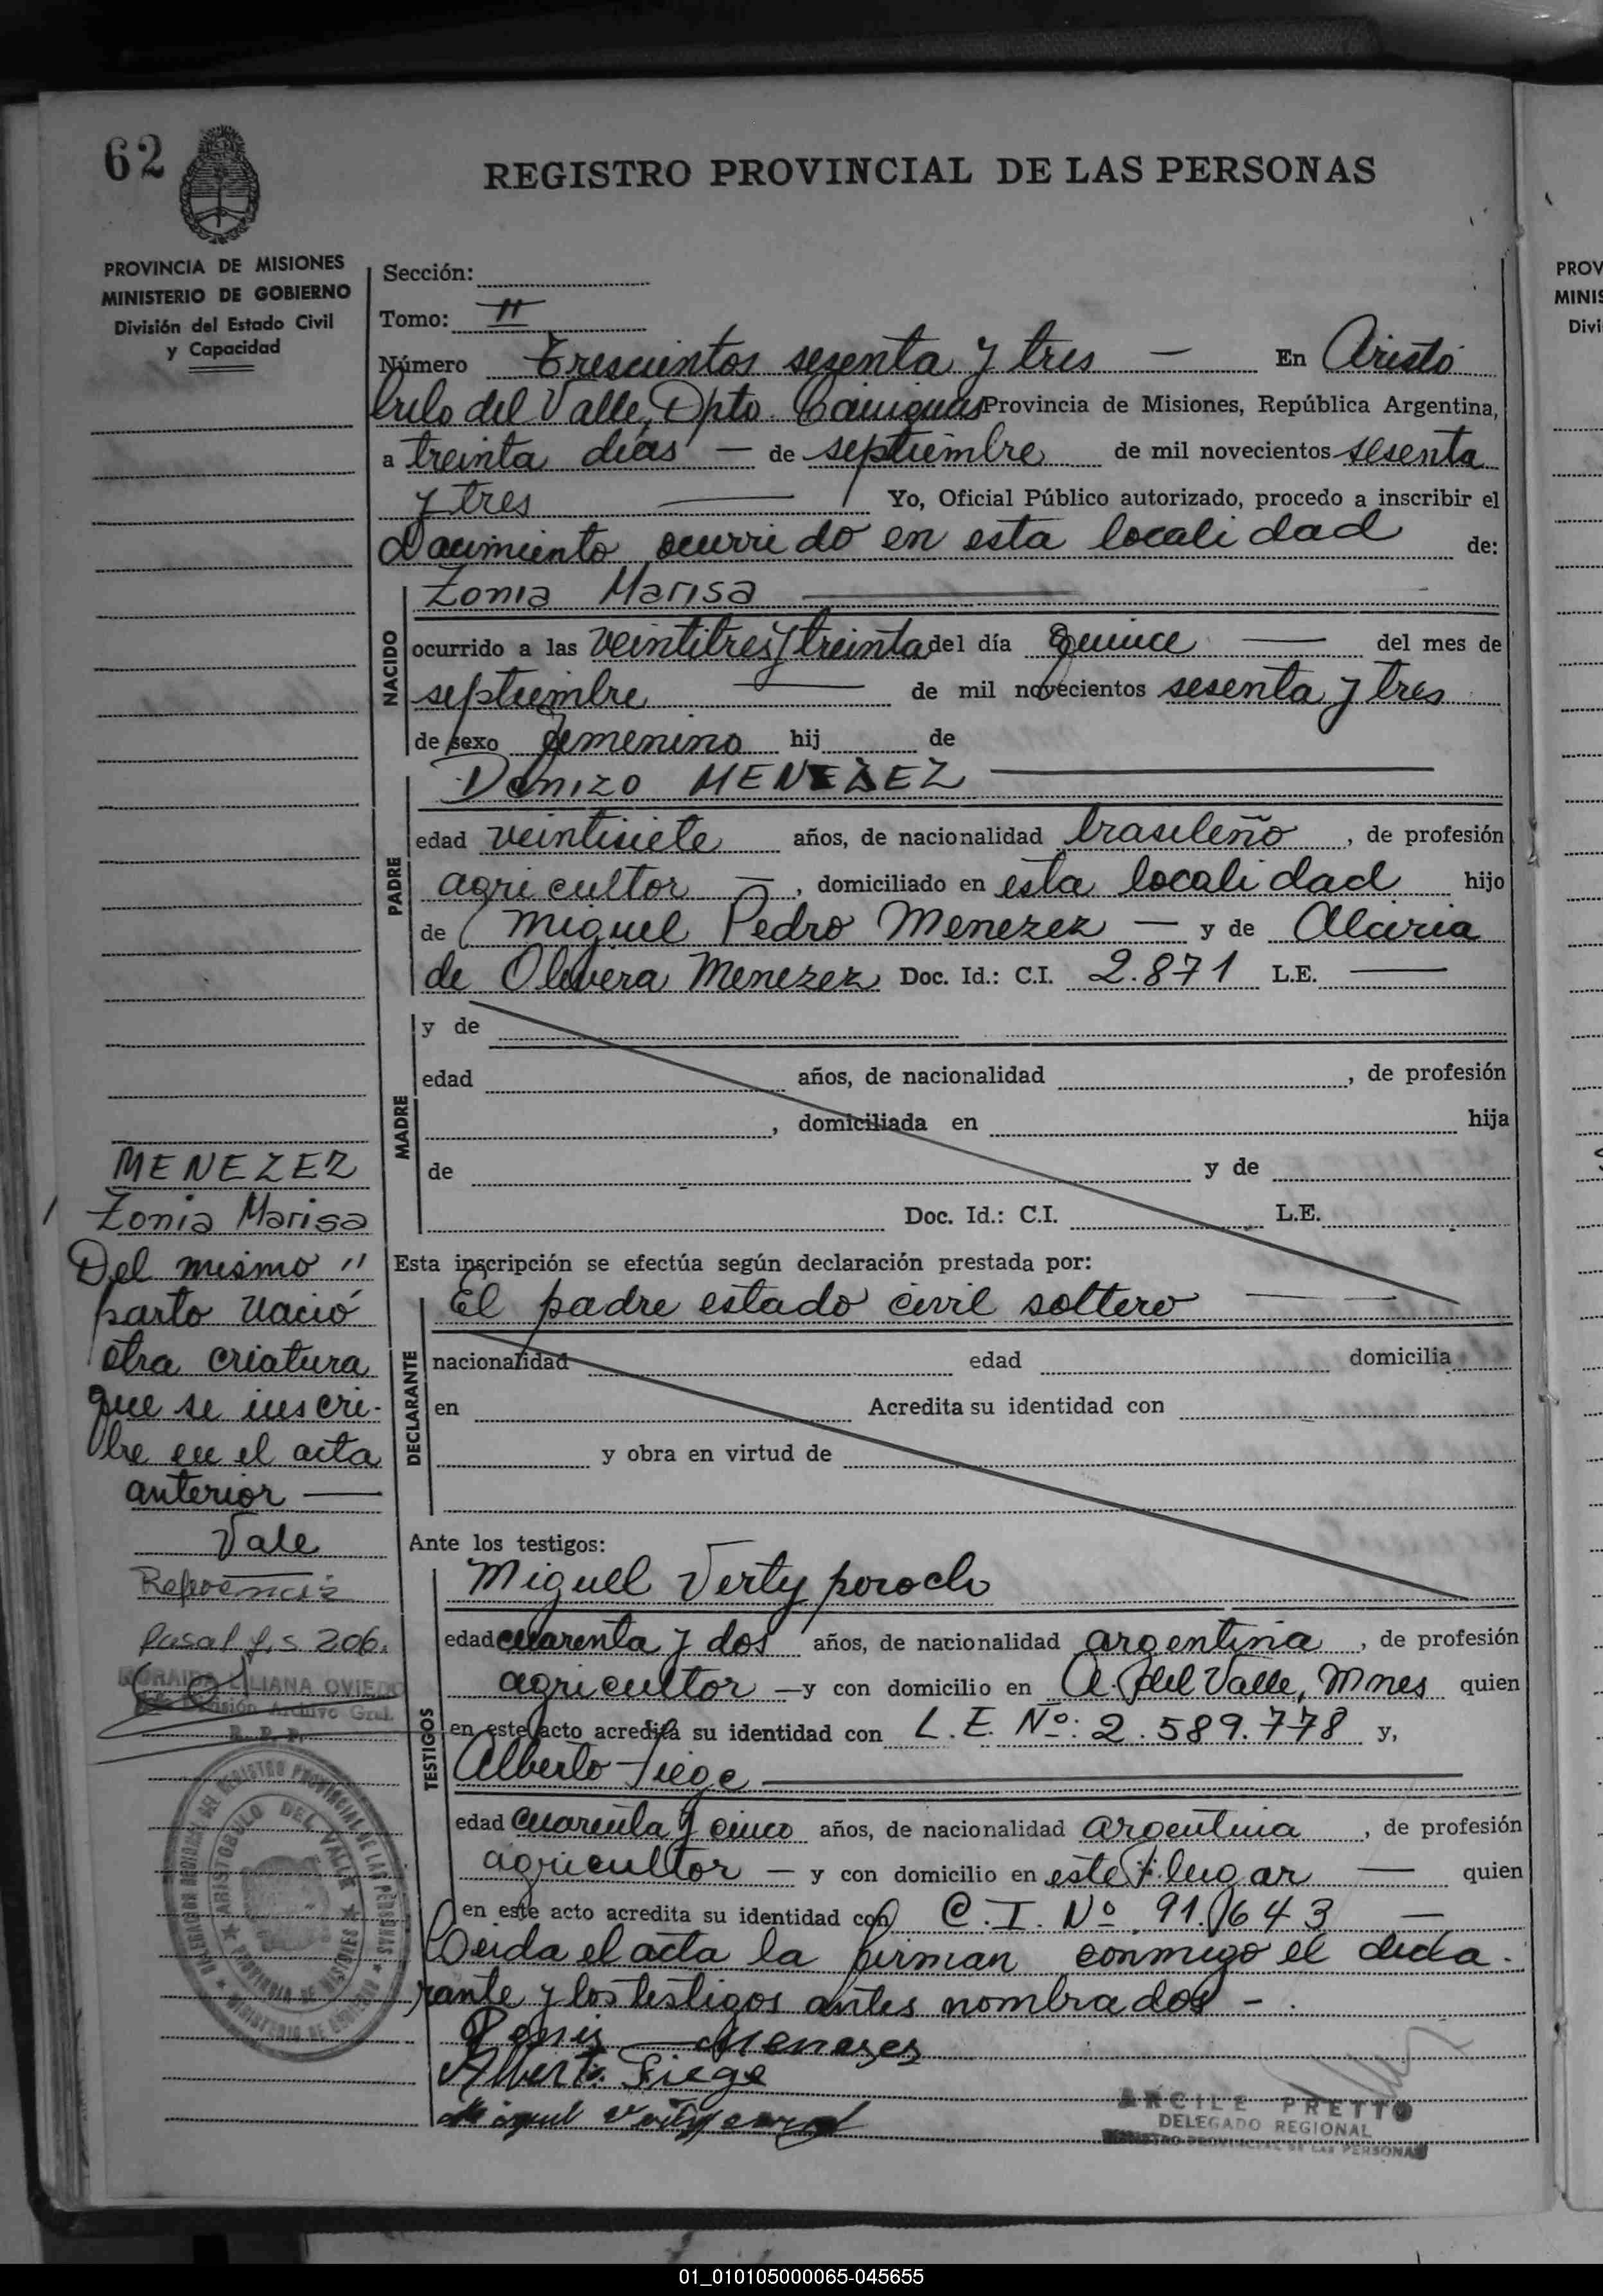 62
REGISTRO PROVINCIAL DE LAS PERSONAS
PROVINCIA DE MISIONES
MINISTERIO DE GOBIERNO
División del Estado Civil
y Capacidad
Sección:
Tomo: II
Número Trescientos sesenta y tres — En Aristó
bulo del Valle, Dpto. Cainguas Provincia de Misiones, República Argentina,
a treinta días — de septiembre de mil novecientos sesenta
y tres — Yo, Oficial Público autorizado, procedo a inscribir el
Nacimiento ocurrido en esta localidad de:
NACIDO
Zonia Marisa —
ocurrido a las veintitres y treinta del día quince — del mes de
septiembre — de mil novecientos sesenta y tres
de sexo femenino hij de
PADRE
MENEZEZ —
edad veintisiete años, de nacionalidad brasileño, de profesión
agricultor —, domiciliado en esta localidad hijo
de Miguel Pedro Menezez — y de
de Olivera Menezez Doc. Id.: C.I. 2.871 L.E. —
MADRE
y de
edad años, de nacionalidad , de profesión
, domiciliada en hija
de y de
Doc. Id.: C.I. L.E.
Esta inscripción se efectúa según declaración prestada por:
DECLARANTE
El padre estado civil soltero —
nacionalidad edad domicilia
en Acredita su identidad con
y obra en virtud de
Ante los testigos:
TESTIGOS
Miguel
edad cuarenta y dos años, de nacionalidad argentina, de profesión
agricultor — y con domicilio en A. del Valle, Mnes quien
en este acto acredita su identidad con L.E. Nº: 2.589.778 y,
Alberto Fiege —
edad cuarenta y cinco años, de nacionalidad argentina, de profesión
agricultor — y con domicilio en este lugar — quien
en este acto acredita su identidad con C.I. Nº 91.643 —
Leida el acta la firman conmigo el decla-
rante y los testigos antes nombrados -.
Menezes
Alberto Fiege
ARCILE PRETTO
DELEGADO REGIONAL
REGISTRO PROVINCIAL DE LAS PERSONAS
MENEZEZ
Zonia Marisa
Del mismo
parto nació
otra criatura
que se inscri-
be en el acta
anterior —
Vale
Referencia
fs 206.
LILIANA OVIEDO
División Archivo Gral.
R. P. P.
DEL REGISTRO PROVINCIAL DE LAS PERSONAS
ARISTOBULO DEL VALLE
PROVINCIA DE MISIONES
MINISTERIO DE GOBIERNO
PROV
MINIS
Divi
01_010105000065-045655